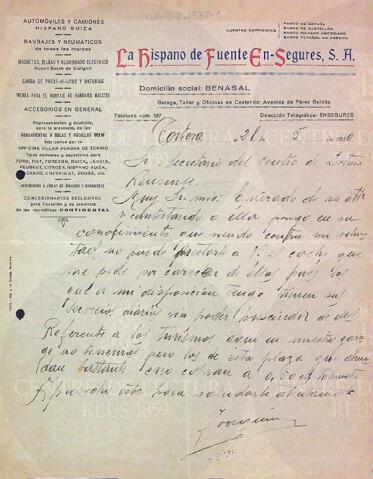 AUTOMÓVILES Y CAMIONES
HISPANO SUIZA
BANDAJES Y NEUMÁTICOS
de todas las marcas
MAGNETOS, BUJÍAS Y ALUMBRADO ELÉCTRICO
Robert Bosch de Stuttgart
CARGA DE
PRENSA PARA EL MONTAJE DE BANDAJES MACIZOS
ACCESORIOS EN GENERAL
Representación y depósito,
para la provincia, de los
RODAMIENTOS A BOLAS Y RODILLOS RIV
fabricados por la
OFFICINE VILLAR PEROSA DE TORINO
Tipos normales y especiales para
FORD, FIAT, FORDSON, BUICK, LANCIA,
PEUGEOT, CITROËN, HISPANO SUIZA,
CRAIG, CHEVROLET, DODGE, etc.
CONCESIONARIOS EXCLUSIVOS
para Castellón y su provincia
de los neumáticos CONTINENTAL
CUENTAS CORRIENTES
BANCO DE ESPAÑA
BANCO DE CASTELLÓN
BANCO HISPANO AMERICANO
BANCO ESPAÑOL DE CRÉDITO
La Hispano de Fuente En-Segures, S. A.
Domicilio social: BENASAL
Garage, Taller y Oficinas en Castellón: Avenida de Pérez Galdós
Teléfono núm. 187
Dirección Telegráfica: ENSEGURES
Tortosa 28 5 1930
Sr. Secretario del Centro de Lectura
Reus
Muy Sr. mio: Enterado de su att.
contestando a ella pongo en su
conocimiento que siendo contra mi volun
tad no puedo a V. coche que
me pide por carecer de ellos pues los
que a mi disposición tengo tienen sus
servicios diarios sin poder prescindir de ellos
Referente a los turismos aqui en nuestro gara
ge no tenemos pero los de esta plaza que abun
dan bastante creo cobran a 0,50 el kilometro
Aprovecho esta para saludarle atentamente
Joaquin
CENTRE DE LECTURA
REUS 1859